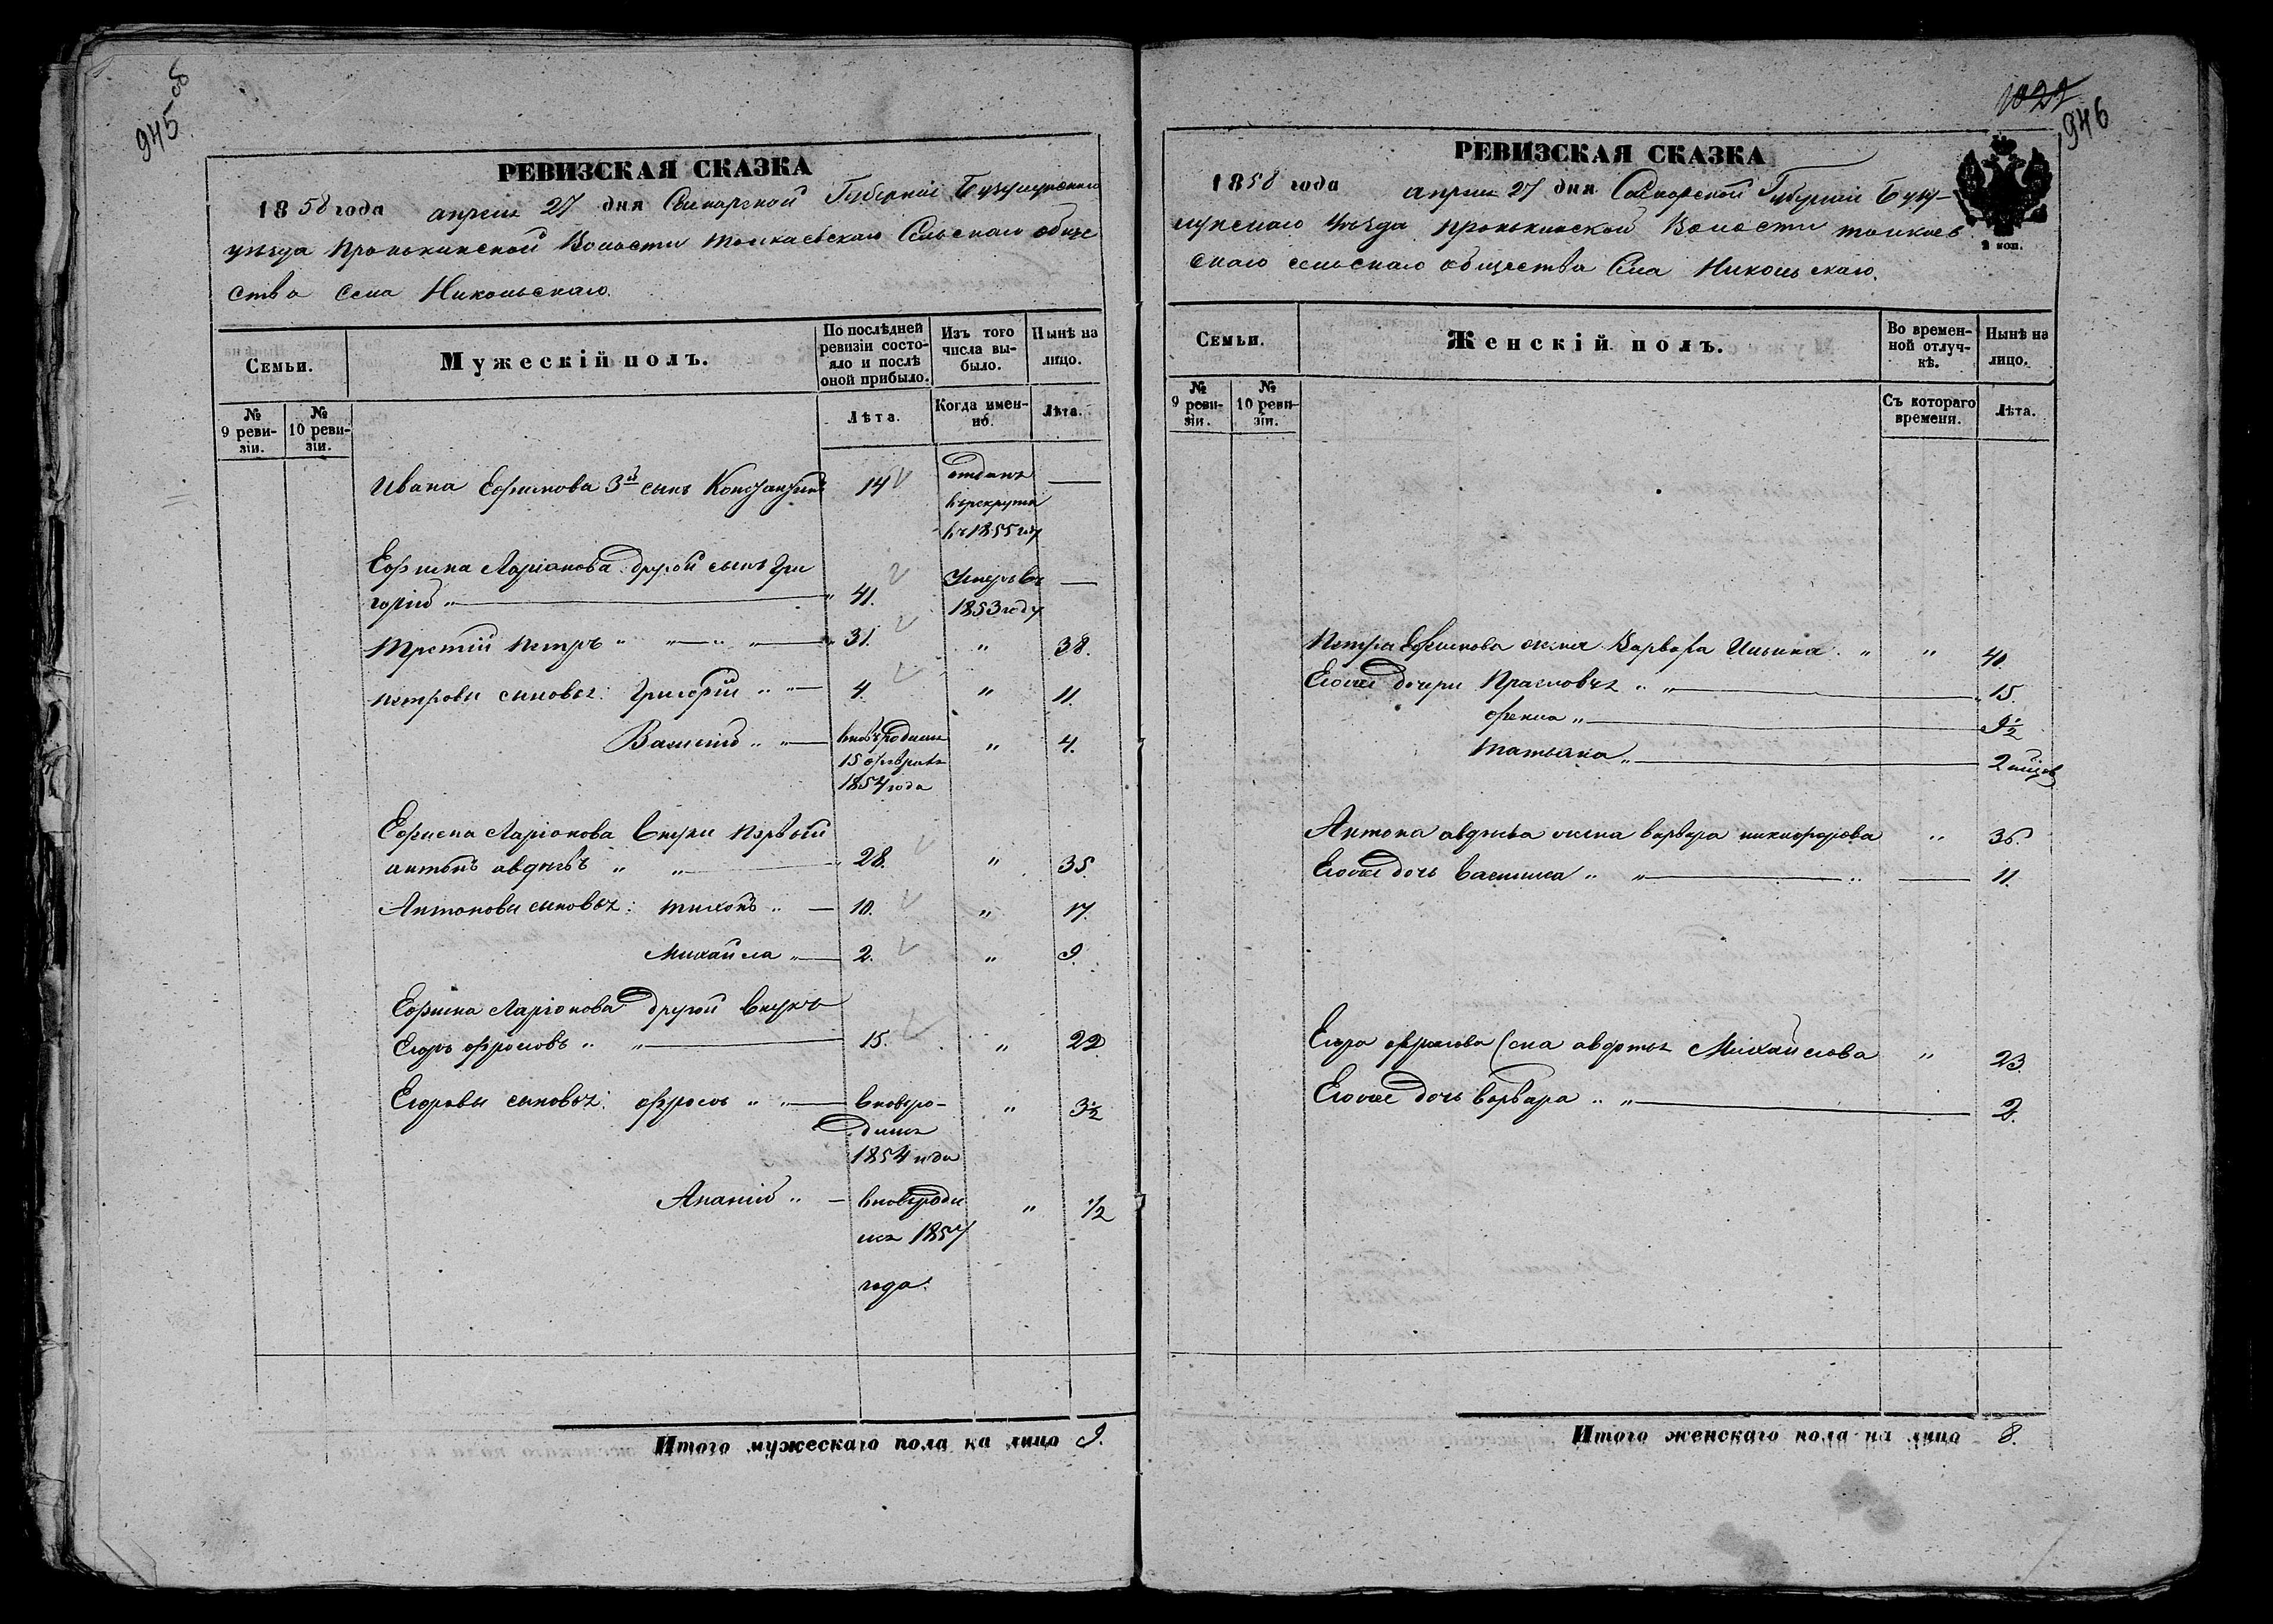 945 об
РЕВИЗСКАЯ СКАЗКА
1858 года апреля 27 дня Самарской Губерніи Бузулукскаго
уѣзда Пронькинской Волости Толкаевскаго Сельскаго обще
ства Села Никольскаго.
Семьи.
Мужескій полъ.
По послѣдней ревизіи состояло и послѣ оной прибыло.
Изъ того числа выбыло.
Нынѣ на лицо.
№ 9 ревизіи.
№ 10 ревизіи.
Лѣта.
Когда именно.
Лѣта.
Ивана Ефимова 3й сынъ Константинъ 14 отданъ —
в рекруты
въ 1855 году
Ефима Ларіонова другой сынъ Гри
горій „ — „ 41. Умеръ въ —
1853 году
Третій Петръ „ „ — „ „ — „ 31. „ 38.
Петровы сыновья: Григорій „ „ — 4. „ 11.
Василій „ „ — вновь родился „ 4.
15 февраля
1854 года
Ефима Ларіонова внуки Первый
антонъ авдѣевъ „ „ — 28. „ 35.
Антоновы сыновья: тихонъ „ — 10. „ 17.
Михайла „ — 2. „ 9.
Ефима Ларіонова другой внукъ
Егоръ фроловъ „ „ — 15. „ 22.
Егоровы сыновья: фролъ „ „ — вновь ро- „ 3½
дился
1854 года
Ананій „ — вновь роди „ 1/2
лся 1857
года.
Итого мужескаго пола на лицо 9.
1022
946
РЕВИЗСКАЯ СКАЗКА
1858 года апреля 27 дня Самарской Губерніи Бузу-
лукскаго уѣзда пронькинской Волости толкаев
скаго сельскаго общества Села Никольскаго.
2 коп.
Семьи.
Женскій полъ.
Во временной отлучкѣ.
Нынѣ на лицо.
№ 9 ревизіи.
№ 10 ревизіи.
Съ котораго времени.
Лѣта.
Петра Ефимова жена Варвара Ильина „ „ 40.
Его же дочери Прасковья „ „ — 15.
фекла „ — 9½
татьяна „ — 2 місяц
Антона авдѣева жена варвара никифорова „ 36.
Его же дочь василиса „ „ — „ — 11.
Егора фролова жена авдотья Михайлова „ 23.
Его же дочь варвара „ „ — 2.
Итого женскаго пола на лицо 8.